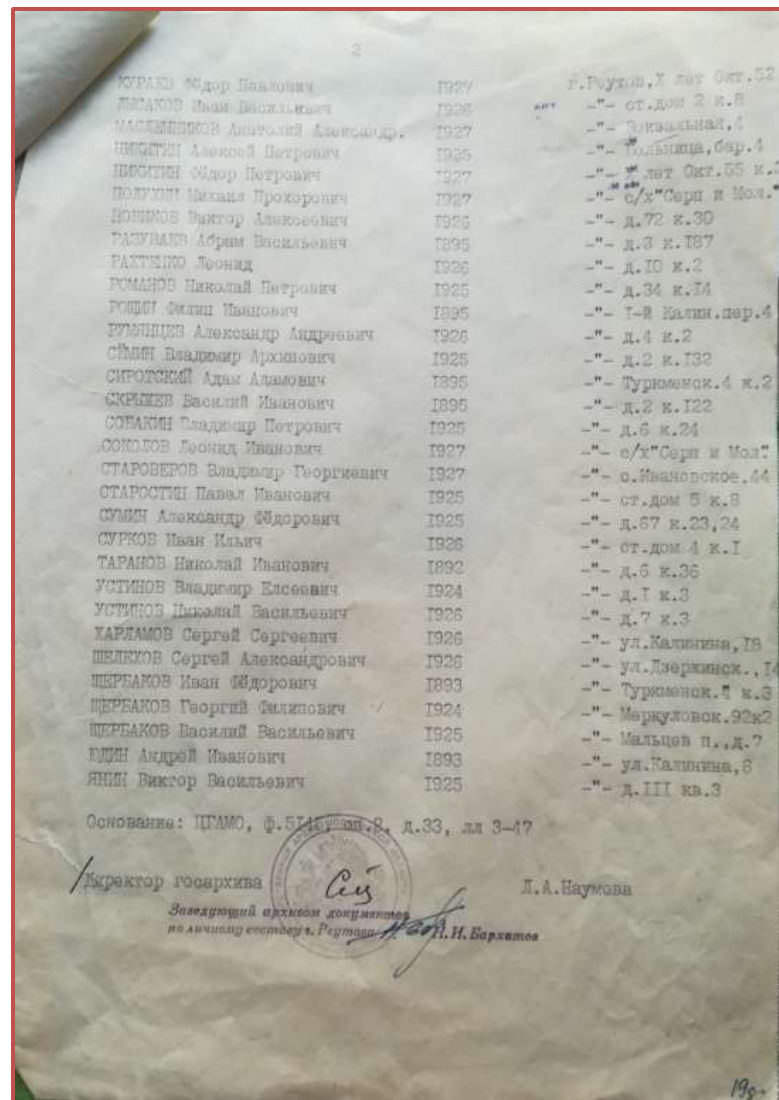 2
КУРАЕВ Фёдор Павлович 1927 г.Реутов,X лет Окт.52
ЛЫСАКОВ Иван Васильевич 1926 -"- ст.дом 2 к.8
МАСЛЕННИКОВ Анатолий Александр. 1927 -"- Вокзальная,4
НИКИТИН Алексей Петрович 1925 -"- Больница,бар.4
НИКИТИН Фёдор Петрович 1927 -"- X лет Окт.55 к.
ПОЛУХИН Михаил Прохорович 1927 -"- с/х"Серп и Мол."
НОВИКОВ Виктор Алексеевич 1926 -"- д.72 к.30
РАЗУВАЕВ Абрам Васильевич 1895 -"- д.3 к.187
РАХТЕНКО Леонид 1926 -"- д.10 к.2
РОМАНОВ Николай Петрович 1925 -"- д.34 к.14
РОЩИН Филип Иванович 1895 -"- I-й Калин.пер.4
РУМЯНЦЕВ Александр Андреевич 1926 -"- д.4 к.2
СЁМИН Владимир Архипович 1925 -"- д.2 к.132
СИРОТСКИЙ Адам Адамович 1895 -"- Туркменск.4 к.2
СКРЫЖЕВ Василий Иванович 1895 -"- д.2 к.122
СОБАКИН Владимир Петрович 1925 -"- д.6 к.24
СОКОЛОВ Леонид Иванович 1927 -"- с/х"Серп и Мол."
СТАРОВЕРОВ Владимир Георгиевич 1927 -"- с.Ивановское,44
СТАРОСТИН Павел Иванович 1925 -"- ст.дом 5 к.8
СУМИН Александр Фёдорович 1925 -"- д.67 к.23,24
СУРКОВ Иван Ильич 1926 -"- ст.дом 4 к.I
ТАРАНОВ Николай Иванович 1892 -"- д.6 к.36
УСТИНОВ Владимир Елсеевич 1924 -"- д.I к.3
УСТИНОВ Николай Васильевич 1926 -"- д.7 к.3
ХАРЛАМОВ Сергей Сергеевич 1926 -"- ул.Калинина,18
ШЕЛЕХОВ Сергей Александрович 1926 -"- ул.Дзержинск.,14
ЩЕРБАКОВ Иван Фёдорович 1893 -"- Туркменск. к.3
ЩЕРБАКОВ Георгий Филипович 1924 -"- Меркуловск.92к2
ЩЕРБАКОВ Василий Васильевич 1925 -"- Мальцев п.,д.7
ЮДИН Андрей Иванович 1893 -"- ул.Калинина,8
ЯНИН Виктор Васильевич 1925 -"- д.III кв.3
Основание: ЦГАМО, оп.2, д.33, лл 3-47
Директор госархива Л.А.Наумова
Заведующий архивом документов
по личному составу г. Реутова Н.И. Бархатов